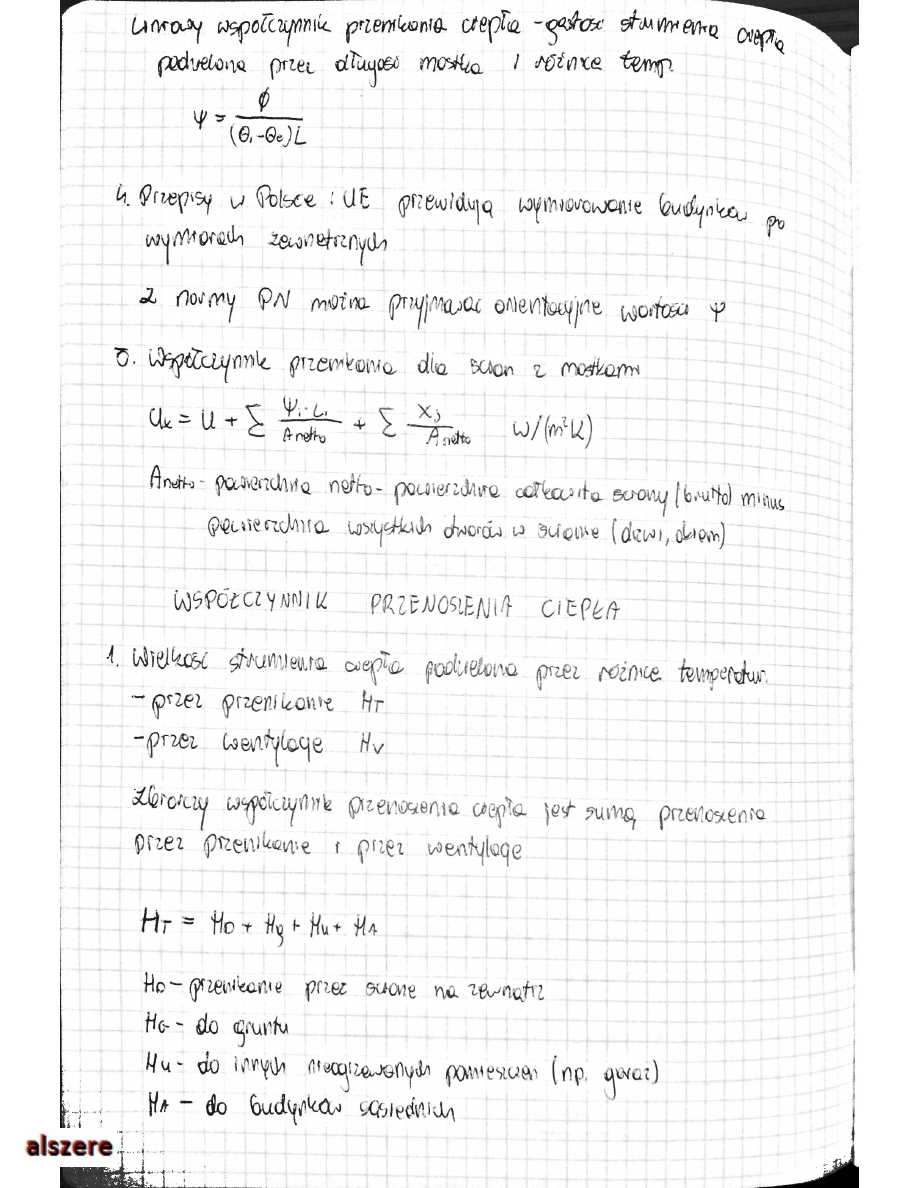 Liniowy współczynnik przenikania ciepła - gęstość strumienia ciepła
podzielona przez długość mostka i różnice temp.
Ψ = Φ / ((Θi - Θe) L)
4. Przepisy w Polsce i UE przewidują wymiarowanie budynków po
wymiarach zewnętrznych
Z normy PN można przyjmować orientacyjne wartości Ψ
5. Współczynnik przenikania dla ścian z mostkami
Uk = U + Σ Ψi · Li / Anetto + Σ Xj / Anetto W/(m²K)
Anetto - powierzchnia netto - powierzchnia całkowita ściany (brutto) minus
powierzchnia wszystkich otworów w ścianie (drzwi, okien)
WSPÓŁCZYNNIK PRZENOSZENIA CIEPŁA
1. Wielkość strumienia ciepła podzielona przez różnice temperatur.
- przez przenikanie HT
- przez wentylację Hv
Zbiorczy współczynnik przenoszenia ciepła jest sumą przenoszenia
przez przenikanie i przez wentylację
HT = HD + Hg + Hu + HA
HD - przenikanie przez ścianę na zewnątrz
HG - do gruntu
Hu - do innych nieogrzewanych pomieszczeń (np. garaż)
HA - do budynków sąsiednich
alszere